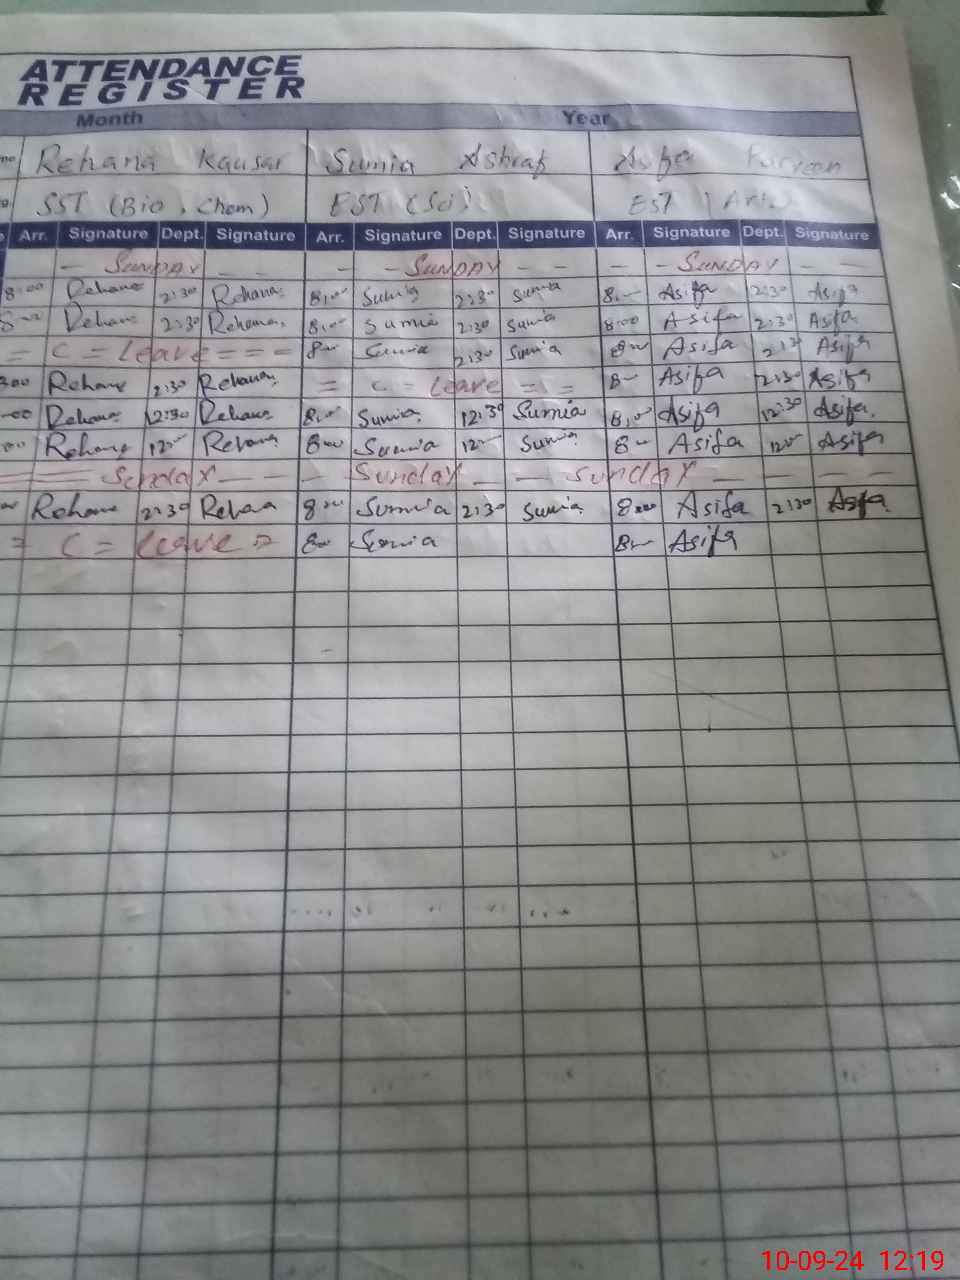 ATTENDANCE
REGISTER
Month Year
Rehana Kausar Sumia Ashraf
SST (Bio, Chem) EST (Sci) EST
Arr. Signature Dept. Signature Arr. Signature Dept. Signature Arr. Signature Dept. Signature
- SUNDAY - - - - SUNDAY - - - - SUNDAY - -
8:00 Rehana 2:30 Rehana 8:00 Sumia 2:30 Sumia 8 Asifa 2:30 Asifa
Rehana 2:30 Rehana 8:00 Sumia 2:30 Sumia 8:00 Asifa 2:30 Asifa
= C = Leave = = = 8 Sumia 2:30 Sumia 8 Asifa Asifa
Rehana 2:30 Rehana = C = Leave = = 8 Asifa 2:30 Asifa
Rehana 12:30 Rehana 8:00 Sumia 12:30 Sumia 8:00 Asifa 12:30 Asifa
Rehana 12 Rehana 8 Sumia 12 Sumia 8 Asifa 12 Asifa
Sunday - - - Sunday - - Sunday - - - -
Rehana 2:30 Rehana 8 Sumia 2:30 Sumia 8 Asifa 2:30 Asifa
= C = Leave = 8 Sumia 8 Asifa
10-09-24 12:19